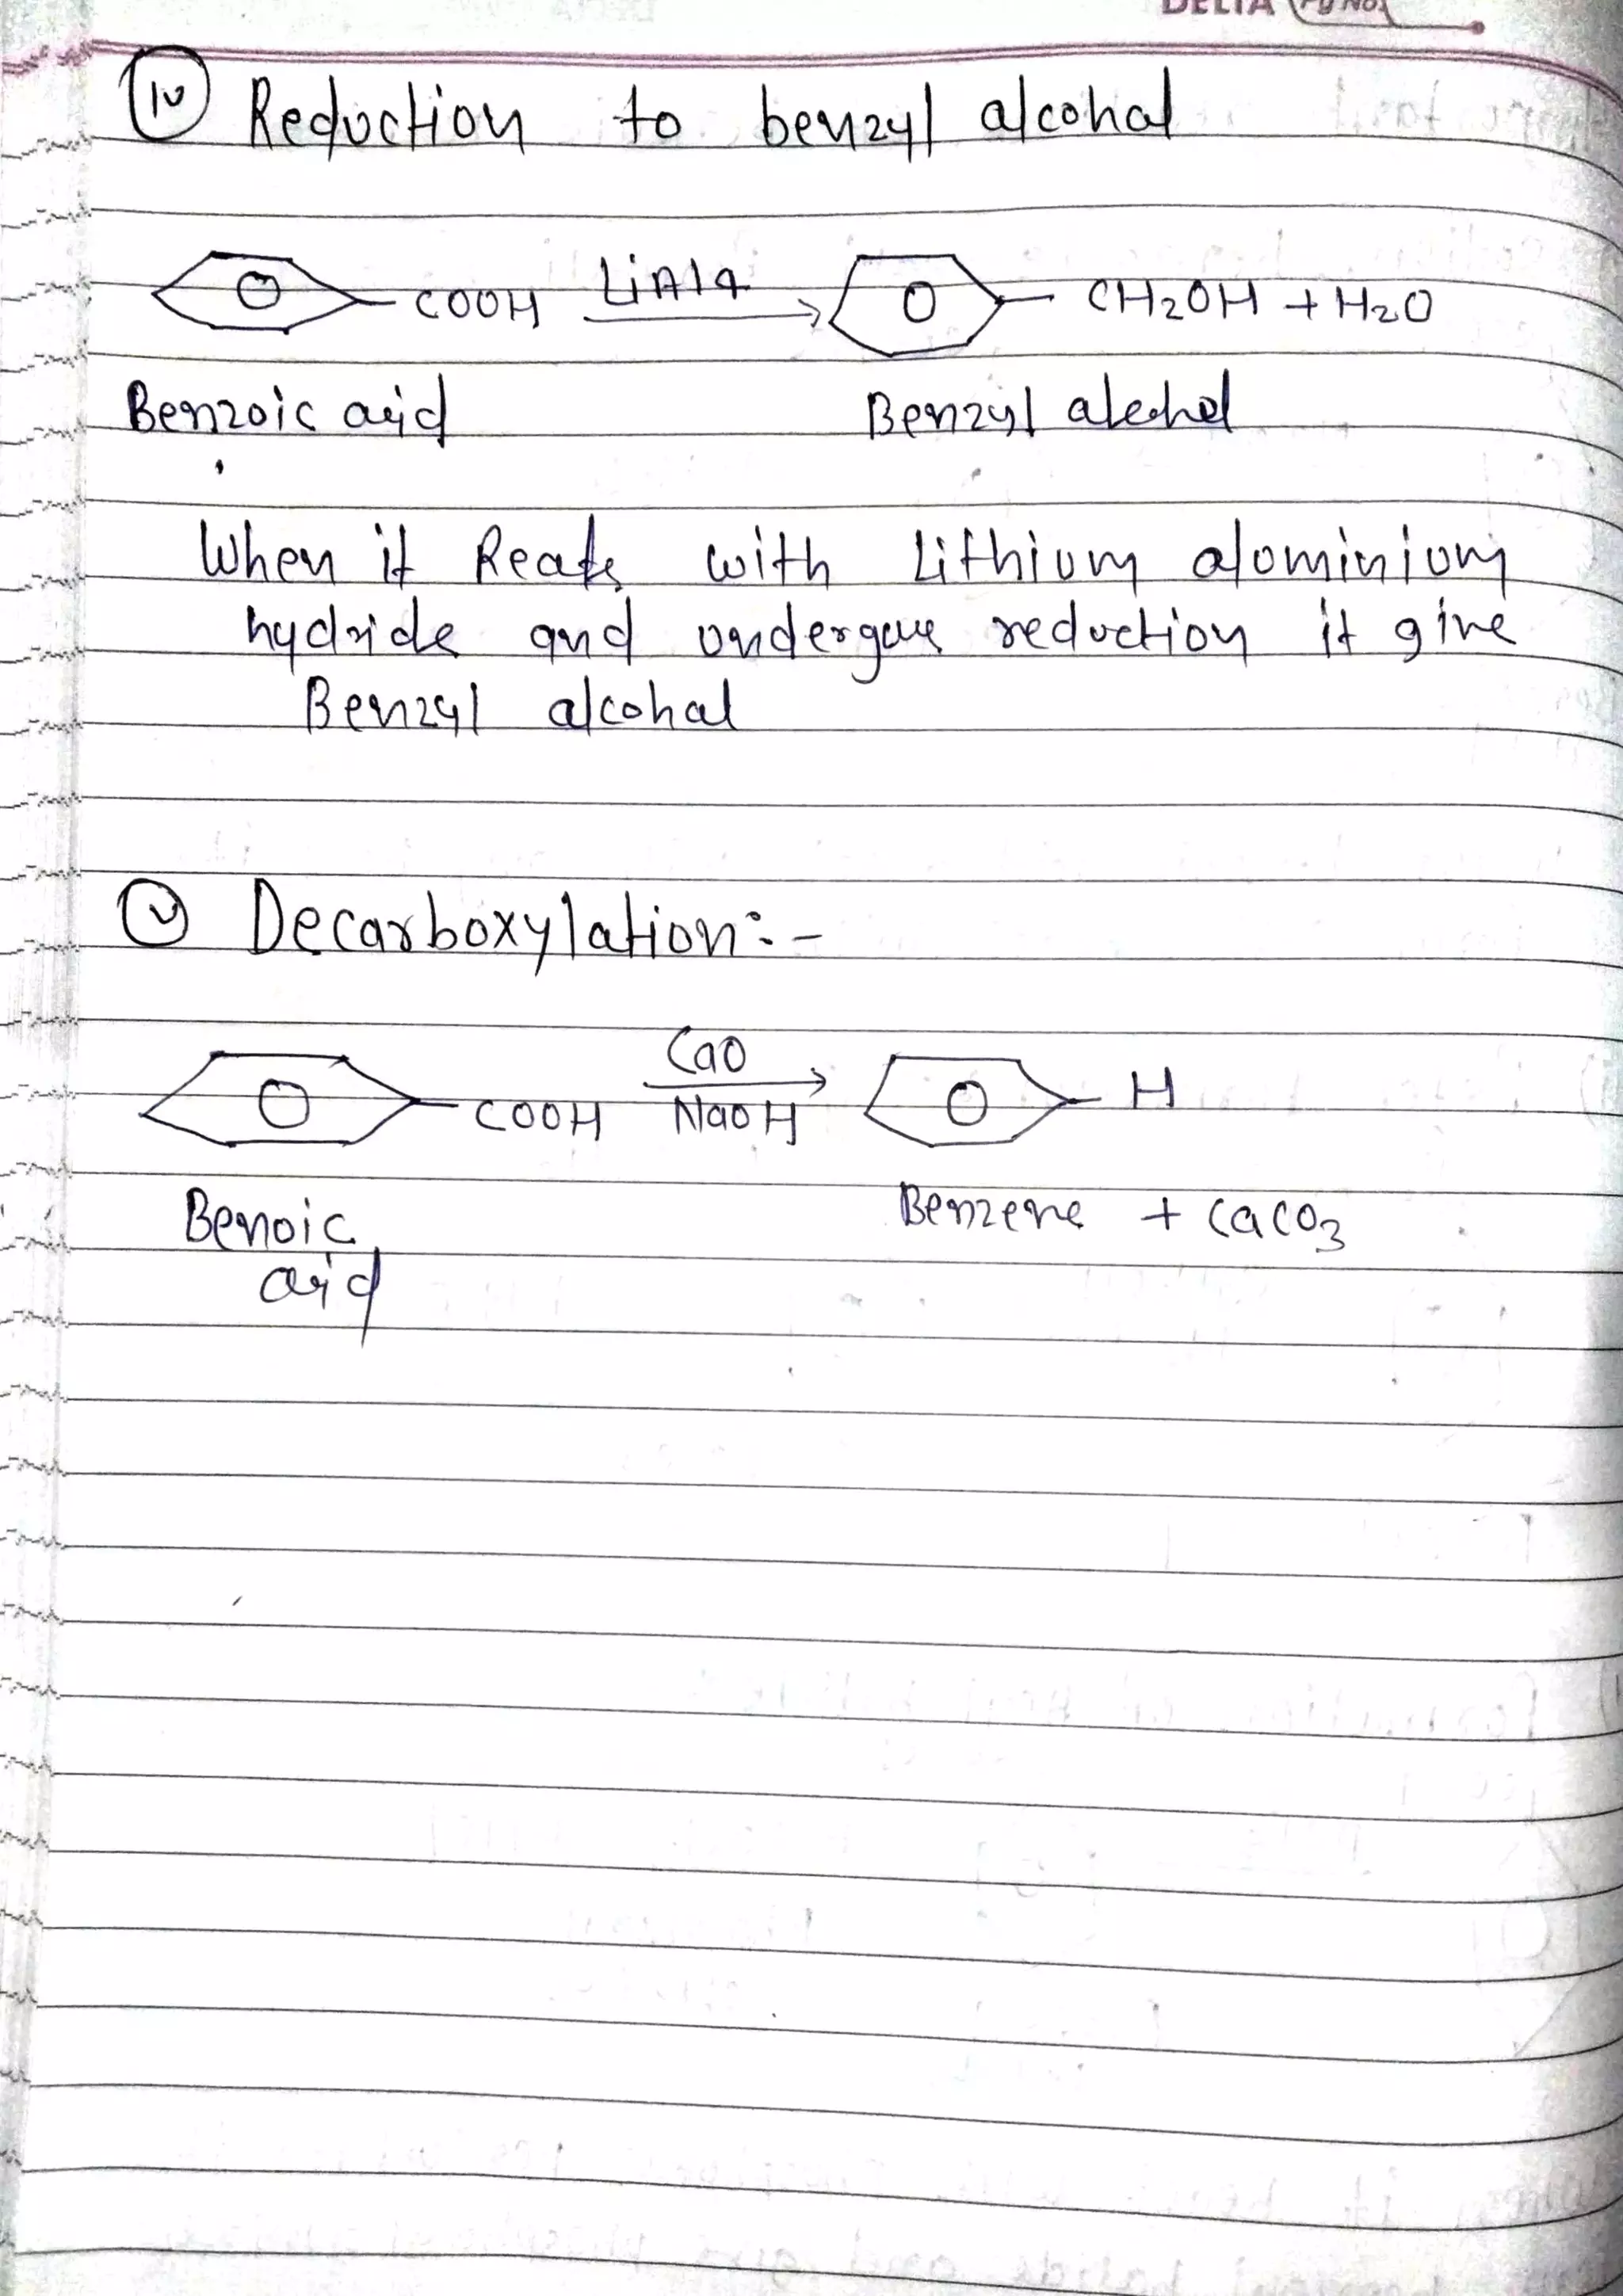 DELTA Pg No.
(iv) Reduction to benzyl alcohal
COOH LiAl4 CH2OH + H2O
Benzoic acid Benzyl alcohol
When it Reacts with Lithium aluminium
hydride and undergoes reduction it give
Benzyl alcohal
(v) Decarboxylation:-
COOH CaO NaOH H
Benoic Benzene + CaCO3
acid